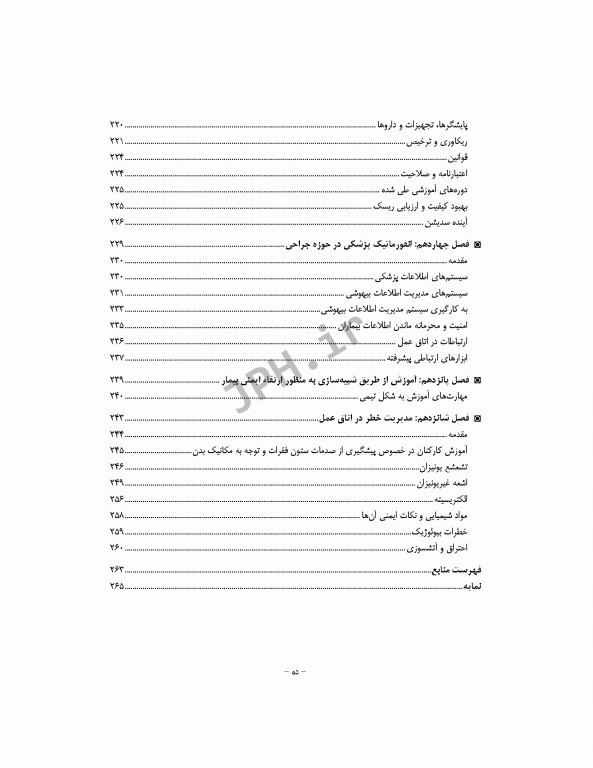 پایشگرها، تجهیزات و داروها ۲۲۰
ریکاوری و ترخیص ۲۲۱
قوانین ۲۲۴
اعتبارنامه و صلاحیت ۲۲۴
دوره‌های آموزشی طی شده ۲۲۵
بهبود کیفیت و ارزیابی ریسک ۲۲۵
آینده سدیشن ۲۲۶
فصل چهاردهم: انفورماتیک پزشکی در حوزه جراحی ۲۲۹
مقدمه ۲۳۰
سیستم‌های اطلاعات پزشکی ۲۳۰
سیستم‌های مدیریت اطلاعات بیهوشی ۲۳۱
به کارگیری سیستم مدیریت اطلاعات بیهوشی ۲۳۳
امنیت و محرمانه ماندن اطلاعات بیماران ۲۳۵
ارتباطات در اتاق عمل ۲۳۶
ابزارهای ارتباطی پیشرفته ۲۳۷
فصل پانزدهم: آموزش از طریق شبیه‌سازی به منظور ارتقاء ایمنی بیمار ۲۳۹
مهارت‌های آموزش به شکل تیمی ۲۴۰
فصل شانزدهم: مدیریت خطر در اتاق عمل ۲۴۳
مقدمه ۲۴۴
آموزش کارکنان در خصوص پیشگیری از صدمات ستون فقرات و توجه به مکانیک بدن ۲۴۵
تشعشع یونیزان ۲۴۶
اشعه غیریونیزان ۲۴۹
الکتریسیته ۲۵۶
مواد شیمیایی و نکات ایمنی آن‌ها ۲۵۸
خطرات بیولوژیک ۲۵۹
احتراق و آتشسوزی ۲۶۰
فهرست منابع ۲۶۳
نمایه ۲۶۵
– ده –
JPH.ir